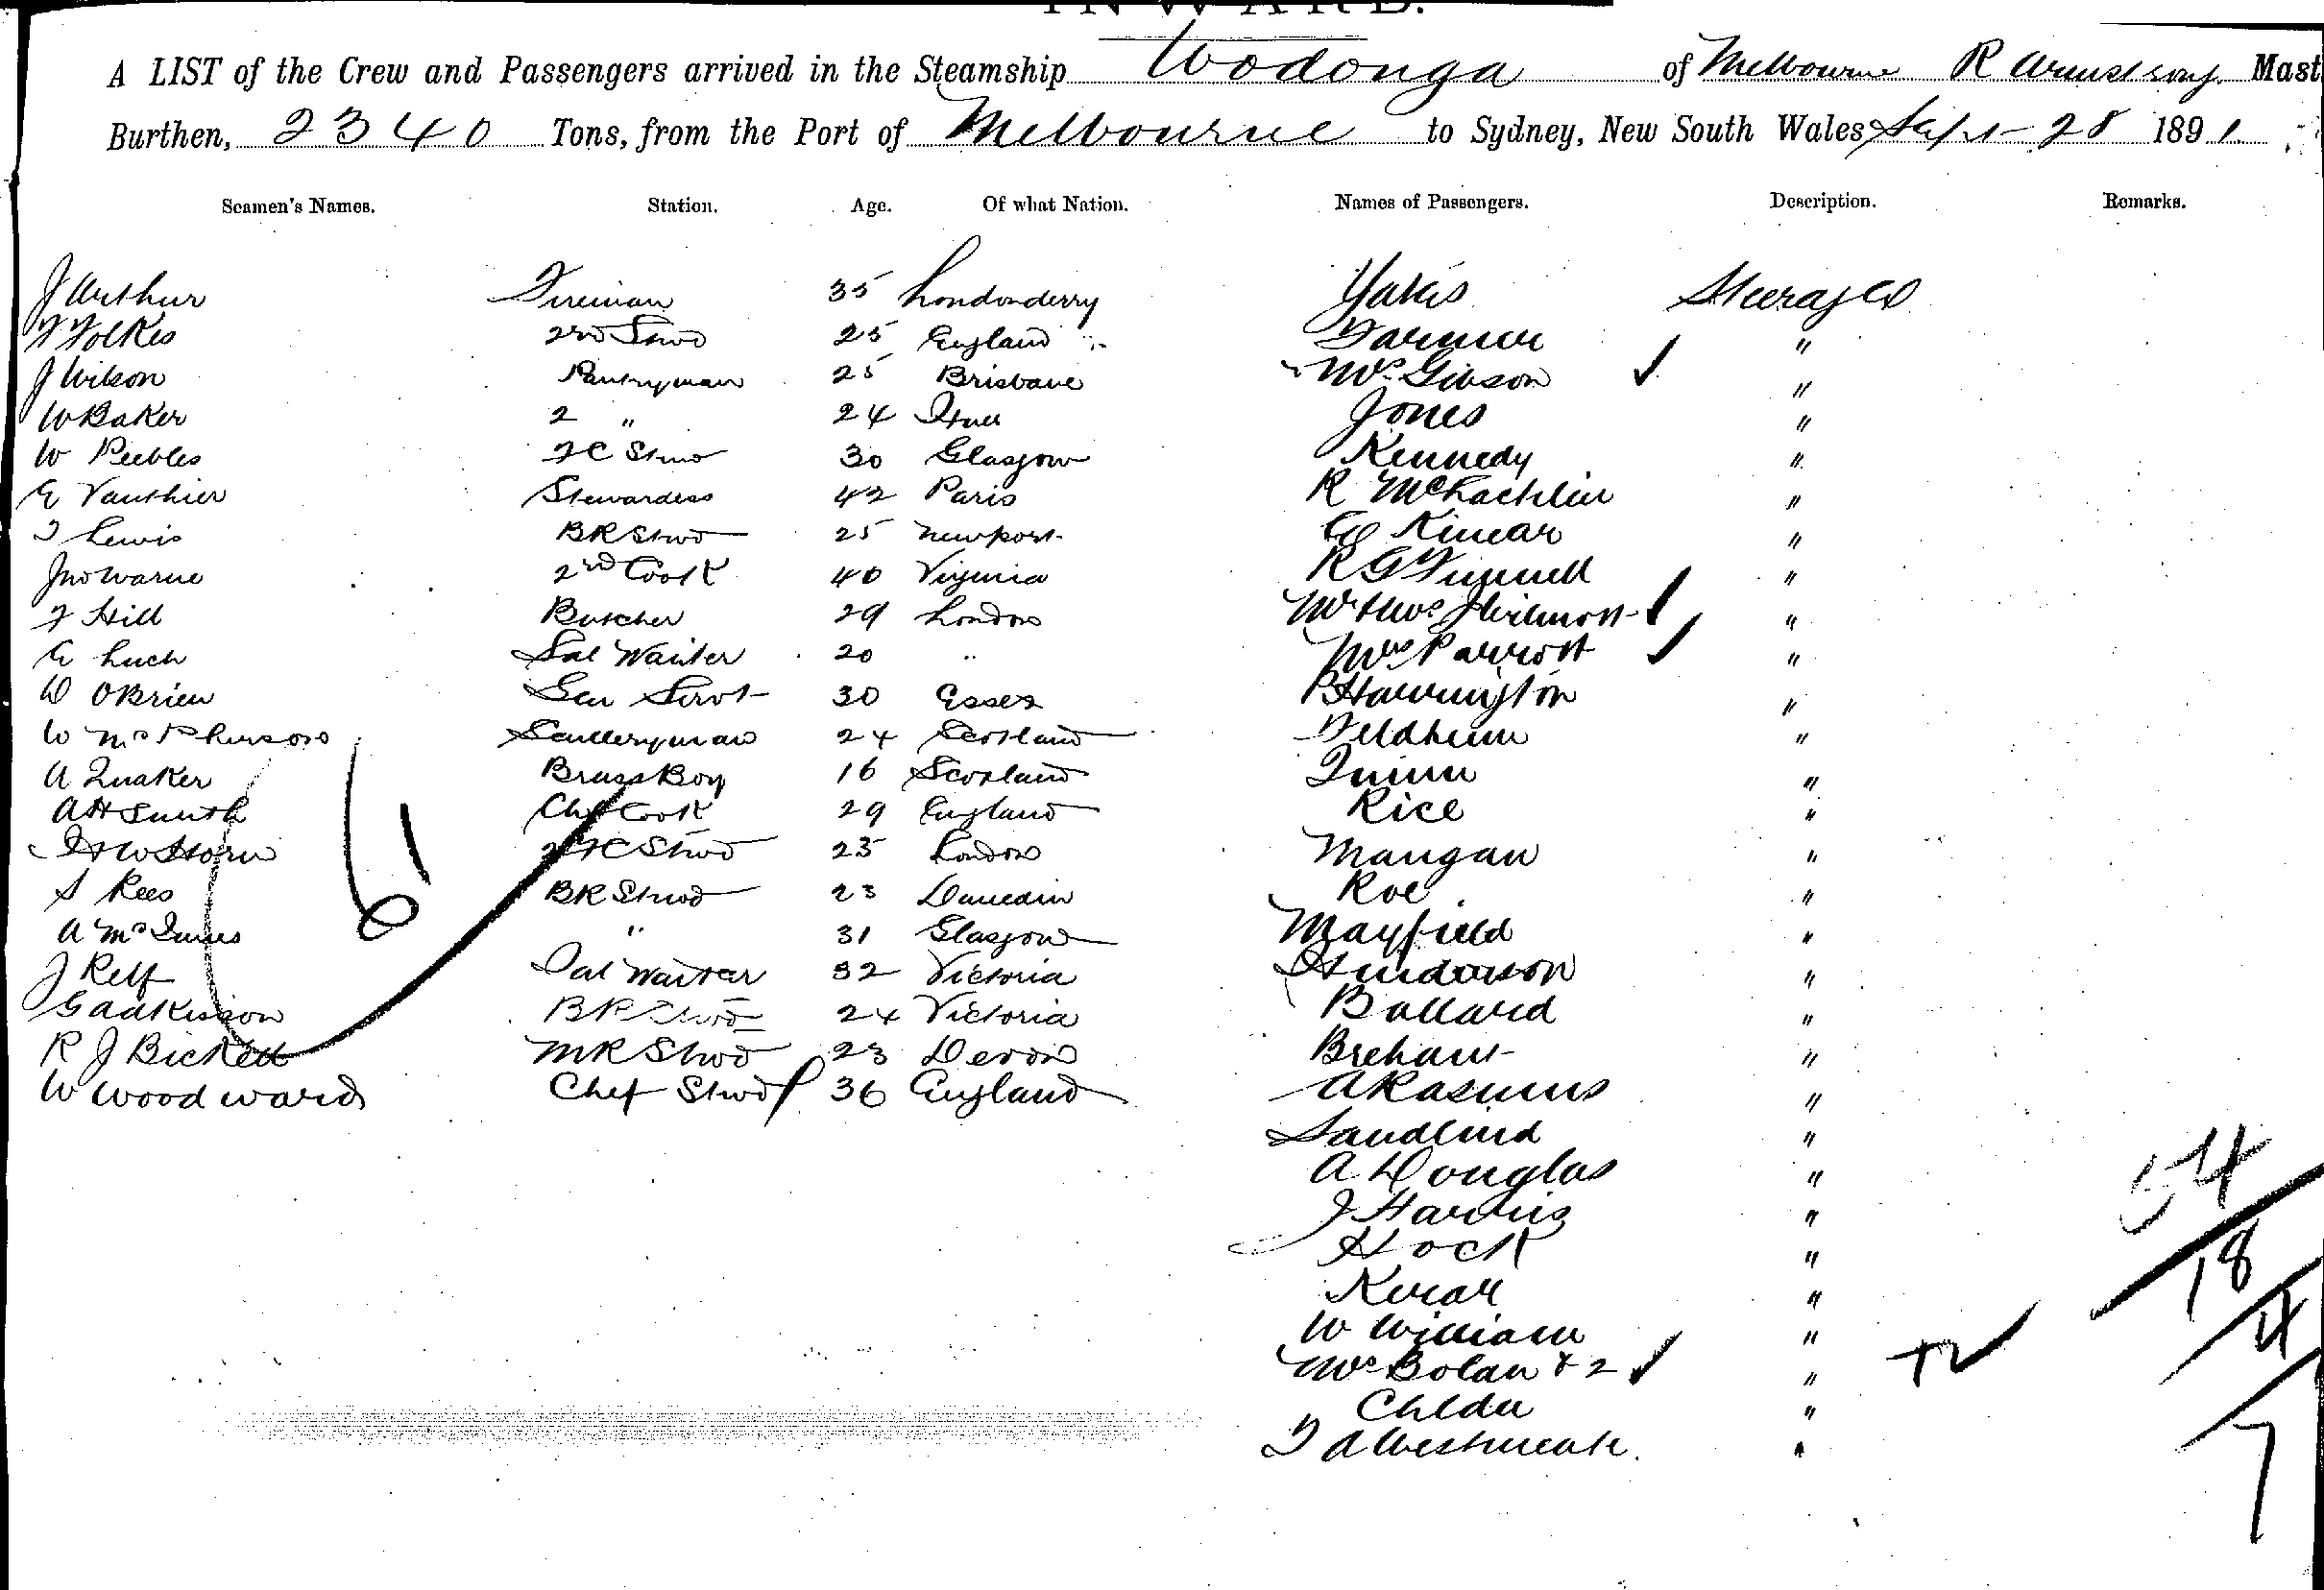 INWARD.
A LIST of the Crew and Passengers arrived in the Steamship Wodonga of Melbourne R Armstrong Mast
Burthen, 2340 Tons, from the Port of Melbourne to Sydney, New South Wales Sept 28 1891.
Seamen's Names. Station. Age. Of what Nation. Names of Passengers. Description. Remarks.
J Arthur Fireman 35 Londonderry Yates Steerage
F Folkes 2nd Stwd 25 England Farmer "
J Wilson Pantryman 25 Brisbane Mrs Gibson "
W Baker 2 " 24 Hull Jones "
W Peebles FC Stwd 30 Glasgow Kennedy "
E Vauthier Stewardess 42 Paris R McLachlin "
T Lewis BR Stwd 25 Newport Kinear "
Jno Warne 2nd Cook 40 Virginia R G "
F Hill Butcher 29 London Mr & Mrs "
E Luch Sal Waiter 20 " Mrs Parrott "
D OBrien Gen Servt 30 Essex B Harrington "
W McPherson Sculleryman 24 Scotland Feldheim "
A Quaker Brass Boy 16 Scotland Quinn "
A H Smith Chf Cook 29 England Rice "
W Horn 2 FC Stwd 25 London Mangan "
S Rees BR Stwd 23 Dunedin Roe "
A McInnes " 31 Glasgow Mayfield "
J Relf Sal Waiter 32 Victoria Henderson "
G Adkisson BR Stwd 24 Victoria Ballard "
R J Bickell MR Stwd 23 Devon Brehaut "
W Woodward Chef Stwd 36 England A Rasmus "
Sandlind "
A Douglas "
J Harris "
Hock "
"
W William "
Mrs Bolan & 2 "
Childn "
T A Westmeath. "
61
54
18
4
7